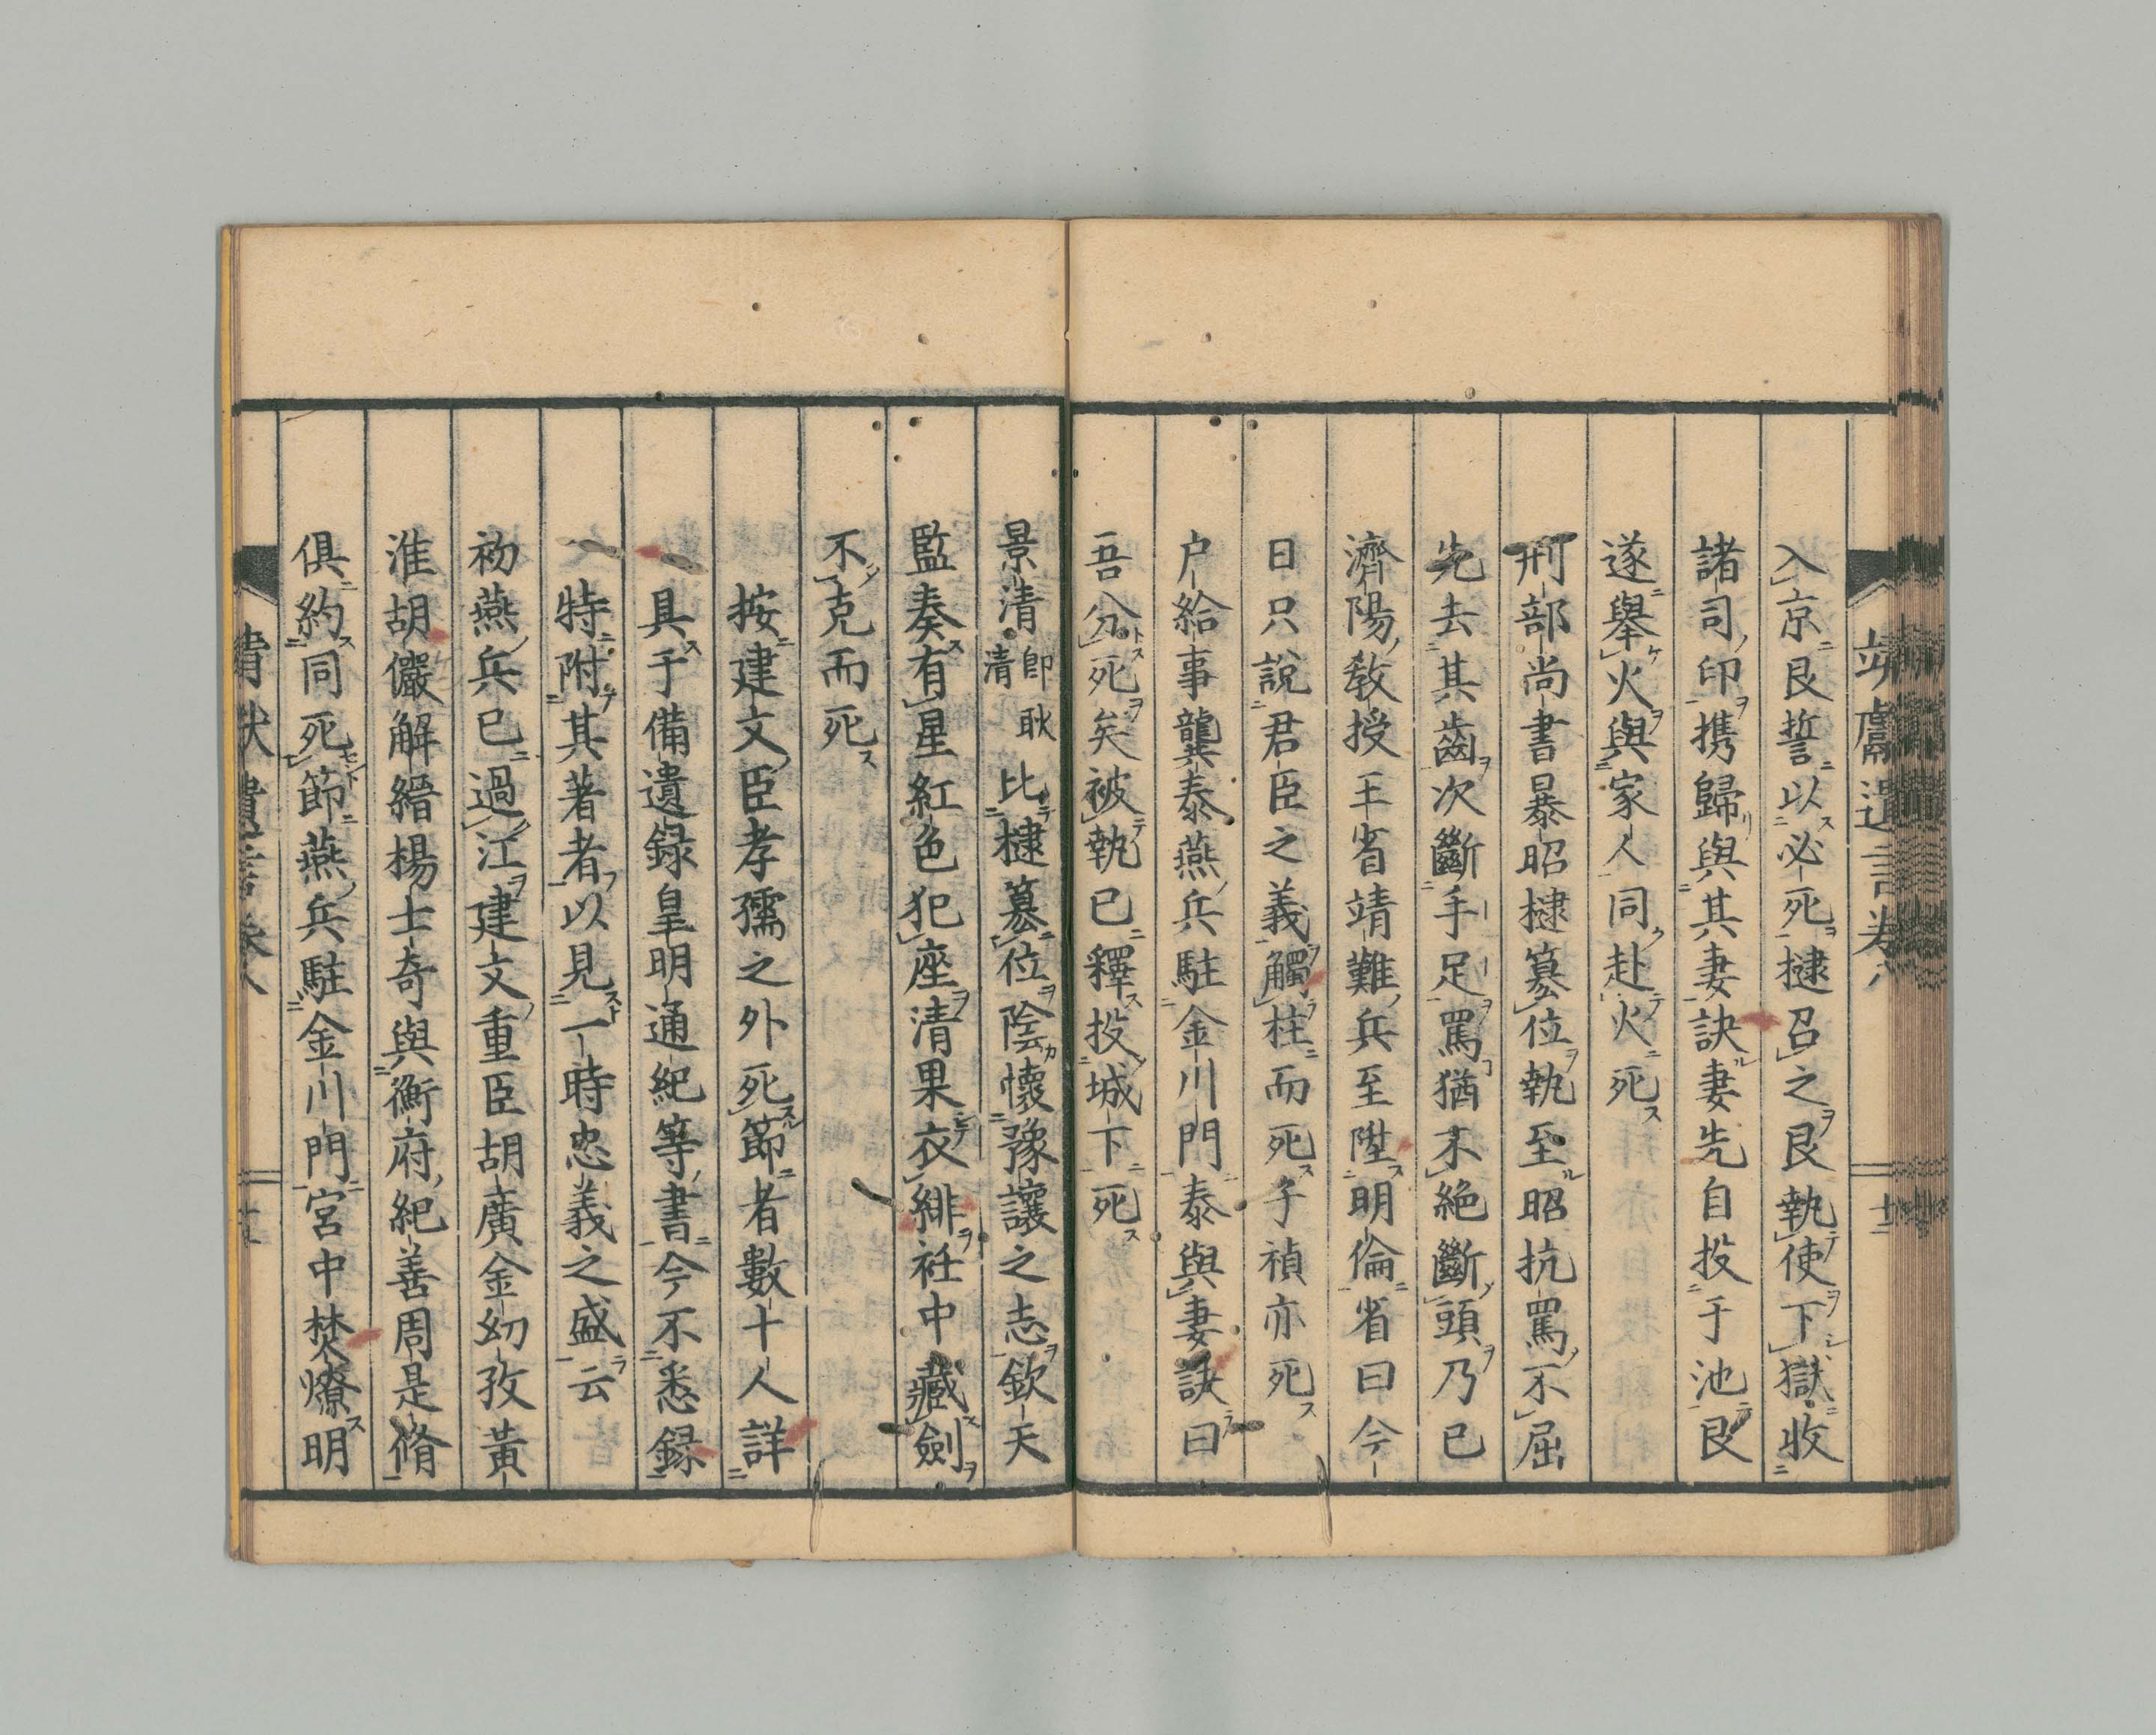 靖獻遺言卷八
入京良誓以必死棣召之良執使下獄收
諸司印携歸與其妻訣妻先自投于池良
遂擧火與家人同赴火死
刑部尚書暴昭棣簒位執至昭抗罵不屈
先去其齒次斷手足罵猶不絶斷頭乃已
濟陽敎授王省靖難兵至陞明倫省曰今
日只說君臣之義觸柱而死子禎亦死
户給事龔泰燕兵駐金川門泰與妻訣曰
吾分死矣被執已釋投城下死
景清卽耿清比棣簒位陰懷豫讓之志欽天
監奏有星紅色犯座清果衣緋衽中藏劍
不克而死
按建文臣孝孺之外死節者數十人詳
具于備遺録皇明通紀等書今不悉録
特附其著者以見一時忠義之盛云
初燕兵已過江建文重臣胡廣金幼孜黃
淮胡儼解縉楊士奇與衡府紀善周是脩
俱約同死節燕兵駐金川門宮中焚燎明
靖獻遺言卷八